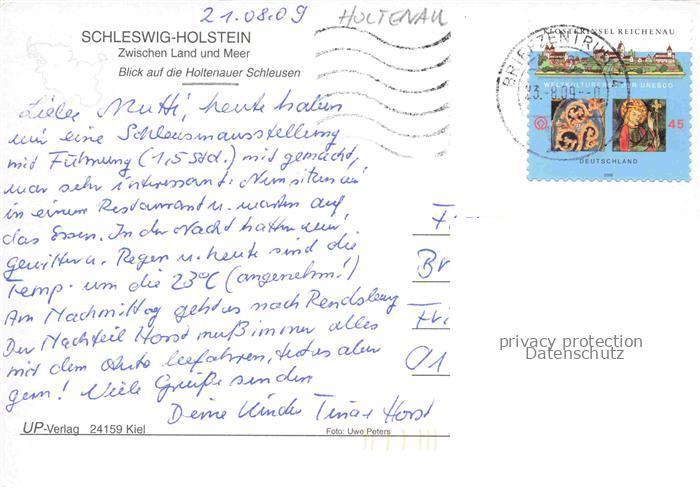 21.08.09 HOLTENAU
SCHLESWIG-HOLSTEIN
Zwischen Land und Meer
Blick auf die Holtenauer Schleusen
Liebe Mutti, heute haben
wir eine Schleusenausstellung
mit Führung (1,5 Std.) mit gemacht,
war sehr interessant. Nun sitzen wir
in einem Restaurant u. warten auf
das Essen. In der Nacht hatten wir
Gewitter u. Regen u. heute sind die
Temp. um die 23°C (angenehm!)
Am Nachmittag geht es nach Rendsburg
Der Nachteil Horst muß immer alles
mit dem Auto abfahren, tut es aber
gern! Viele Grüße senden
Deine Kinder Tina + Horst
UP-Verlag 24159 Kiel
Foto: Uwe Peters
KLOSTERINSEL REICHENAU
WELTKULTURERBE DER UNESCO
45
DEUTSCHLAND
2008
BRIEFZENTRUM
23.8.09
Fr
Br
Fri
01
privacy protection
Datenschutz